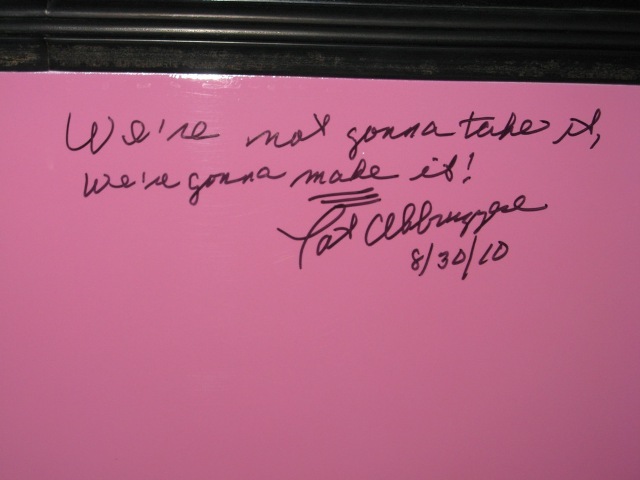 We're not gonna take it,
we're gonna make it!
Pat Abbruzzese
8/30/10